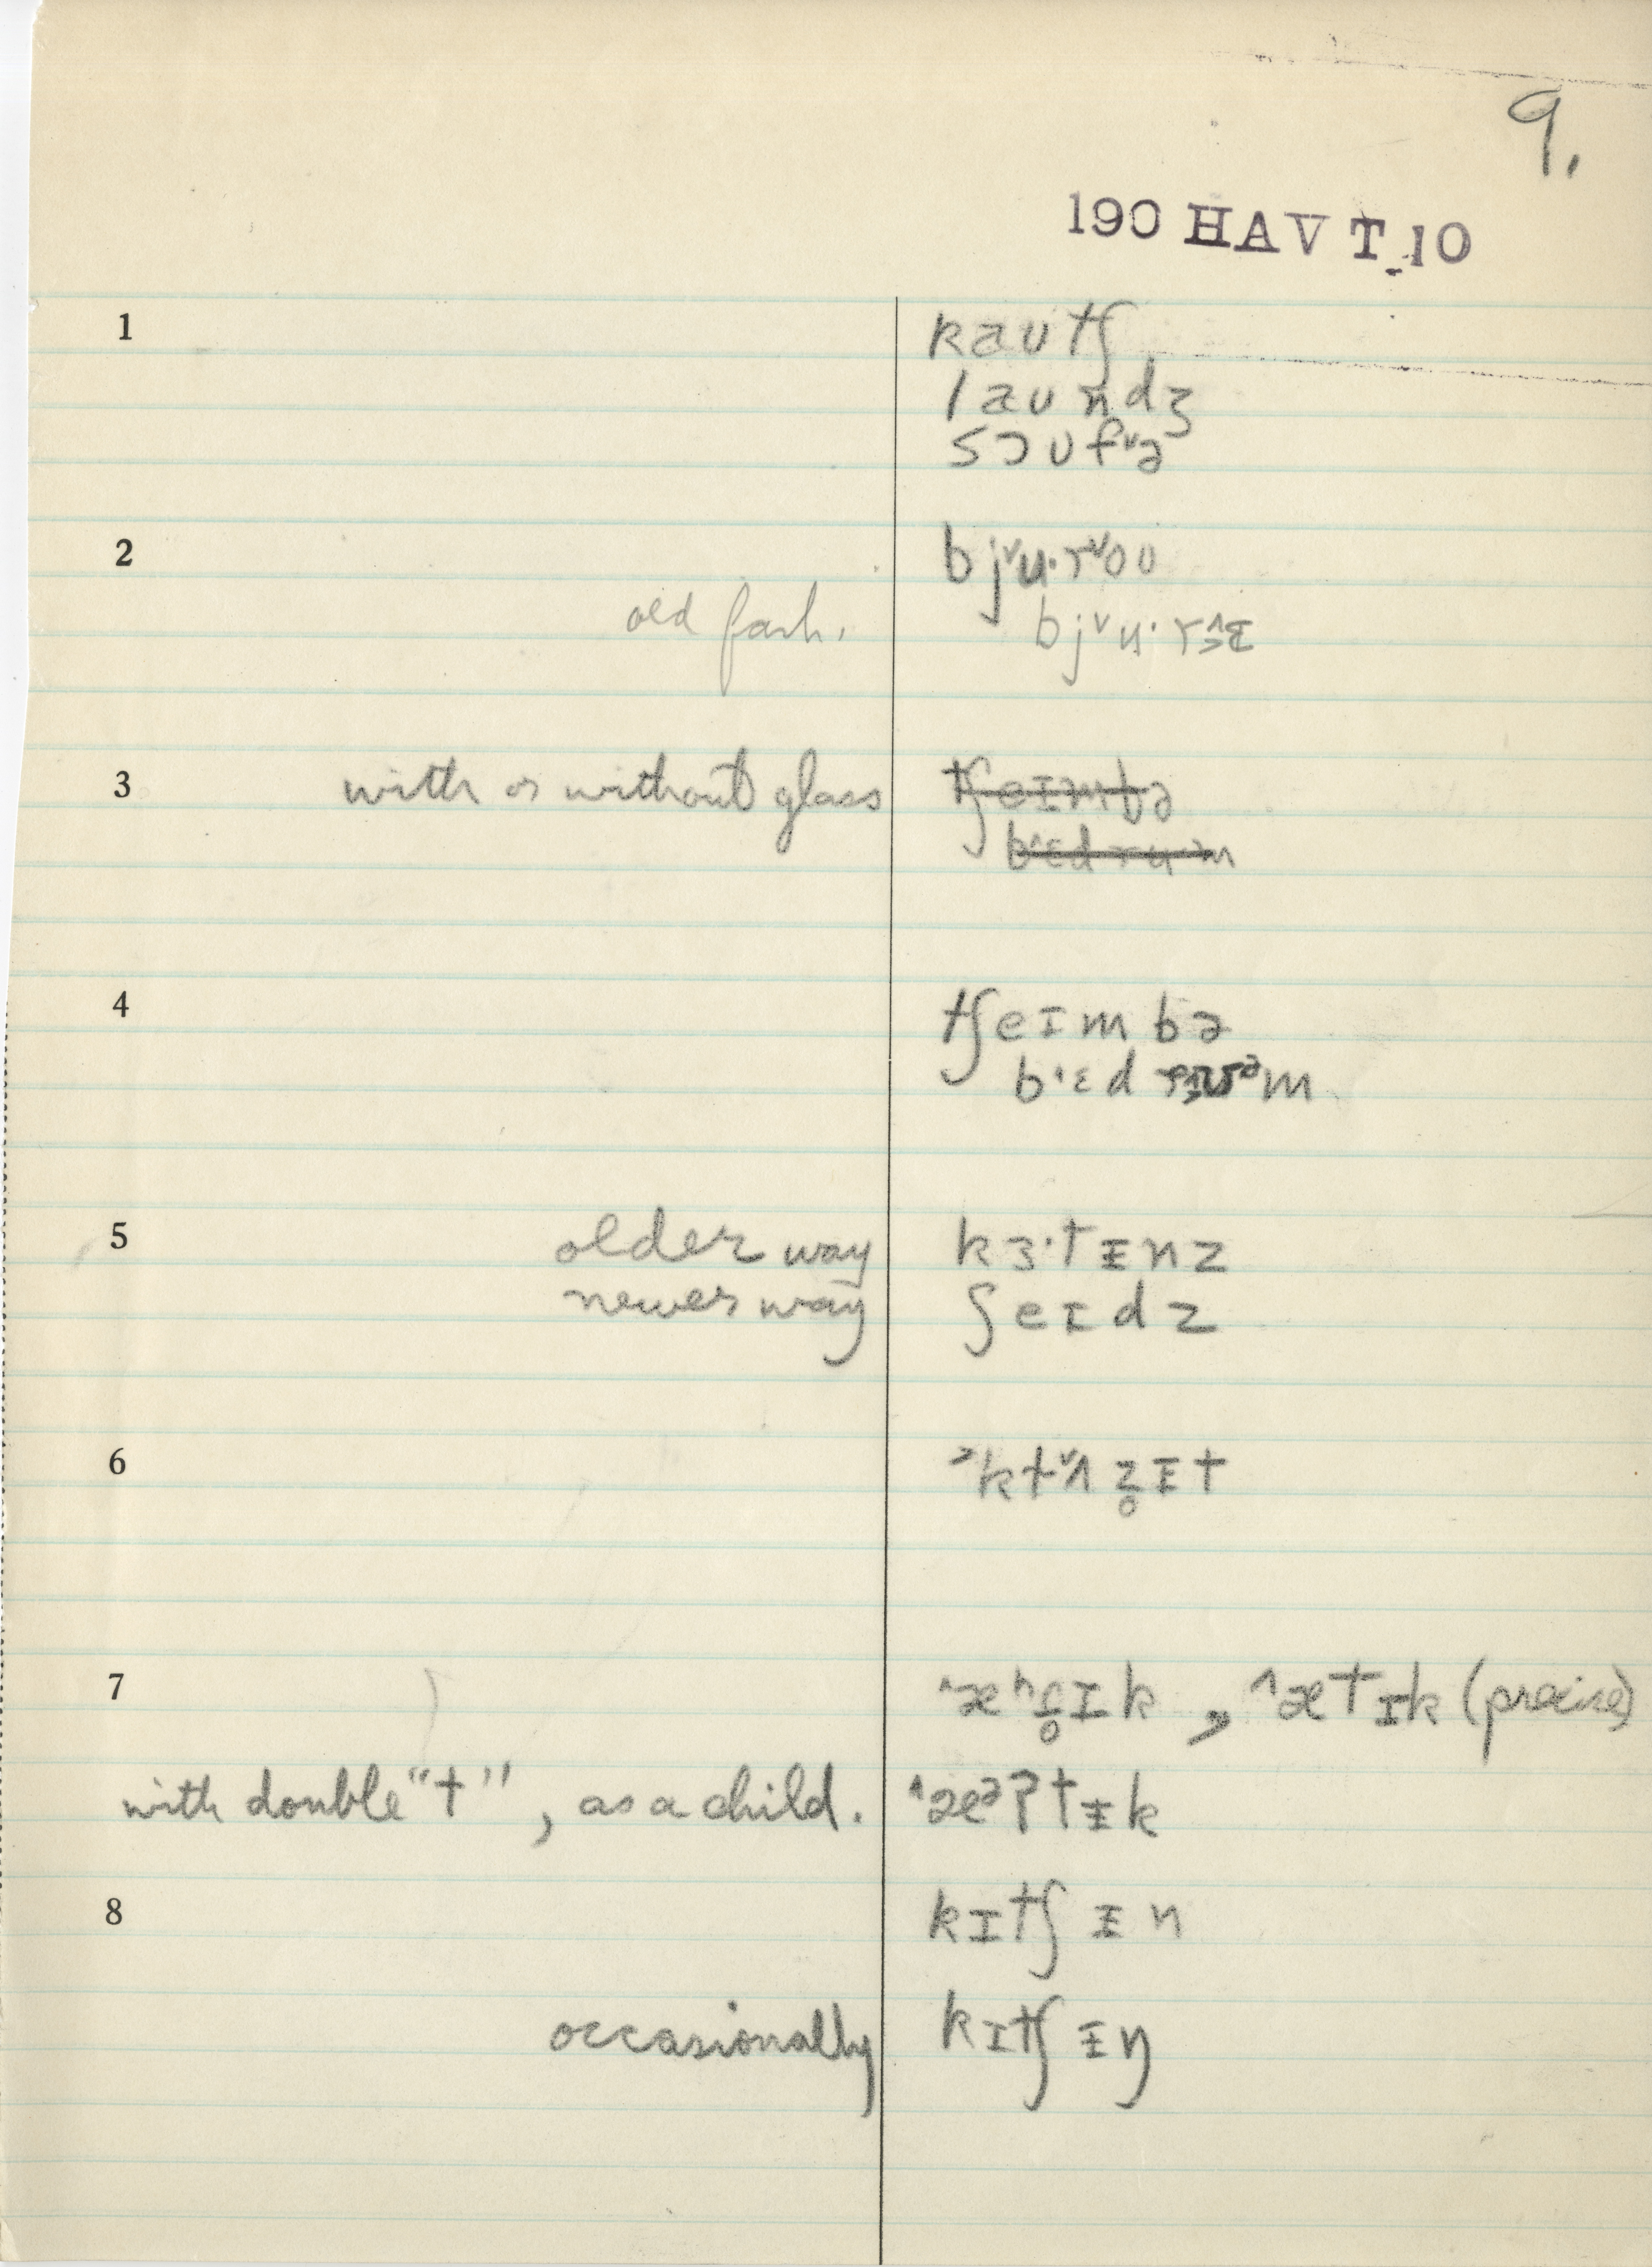 9.
190 HAV T 10
1 kaʊtʃ
laʊndʒ
sɔʊfˇə
2 bjˇu·rˇoʊ
old fash. bjˇu·r
3 with or without glass tʃeɪmbə
bˈɛd rum
4 tʃeɪmbə
bˈɛd
5 older way kɜ·tᵻnz
newer way ʃeɪdz
6 z̥ᵻt
7 , ^ætɪk (precise)
with double "t", as a child. ^æᵊʔtᵻk
8 kɪtʃᵻn
occasionally kɪtʃᵻŋ